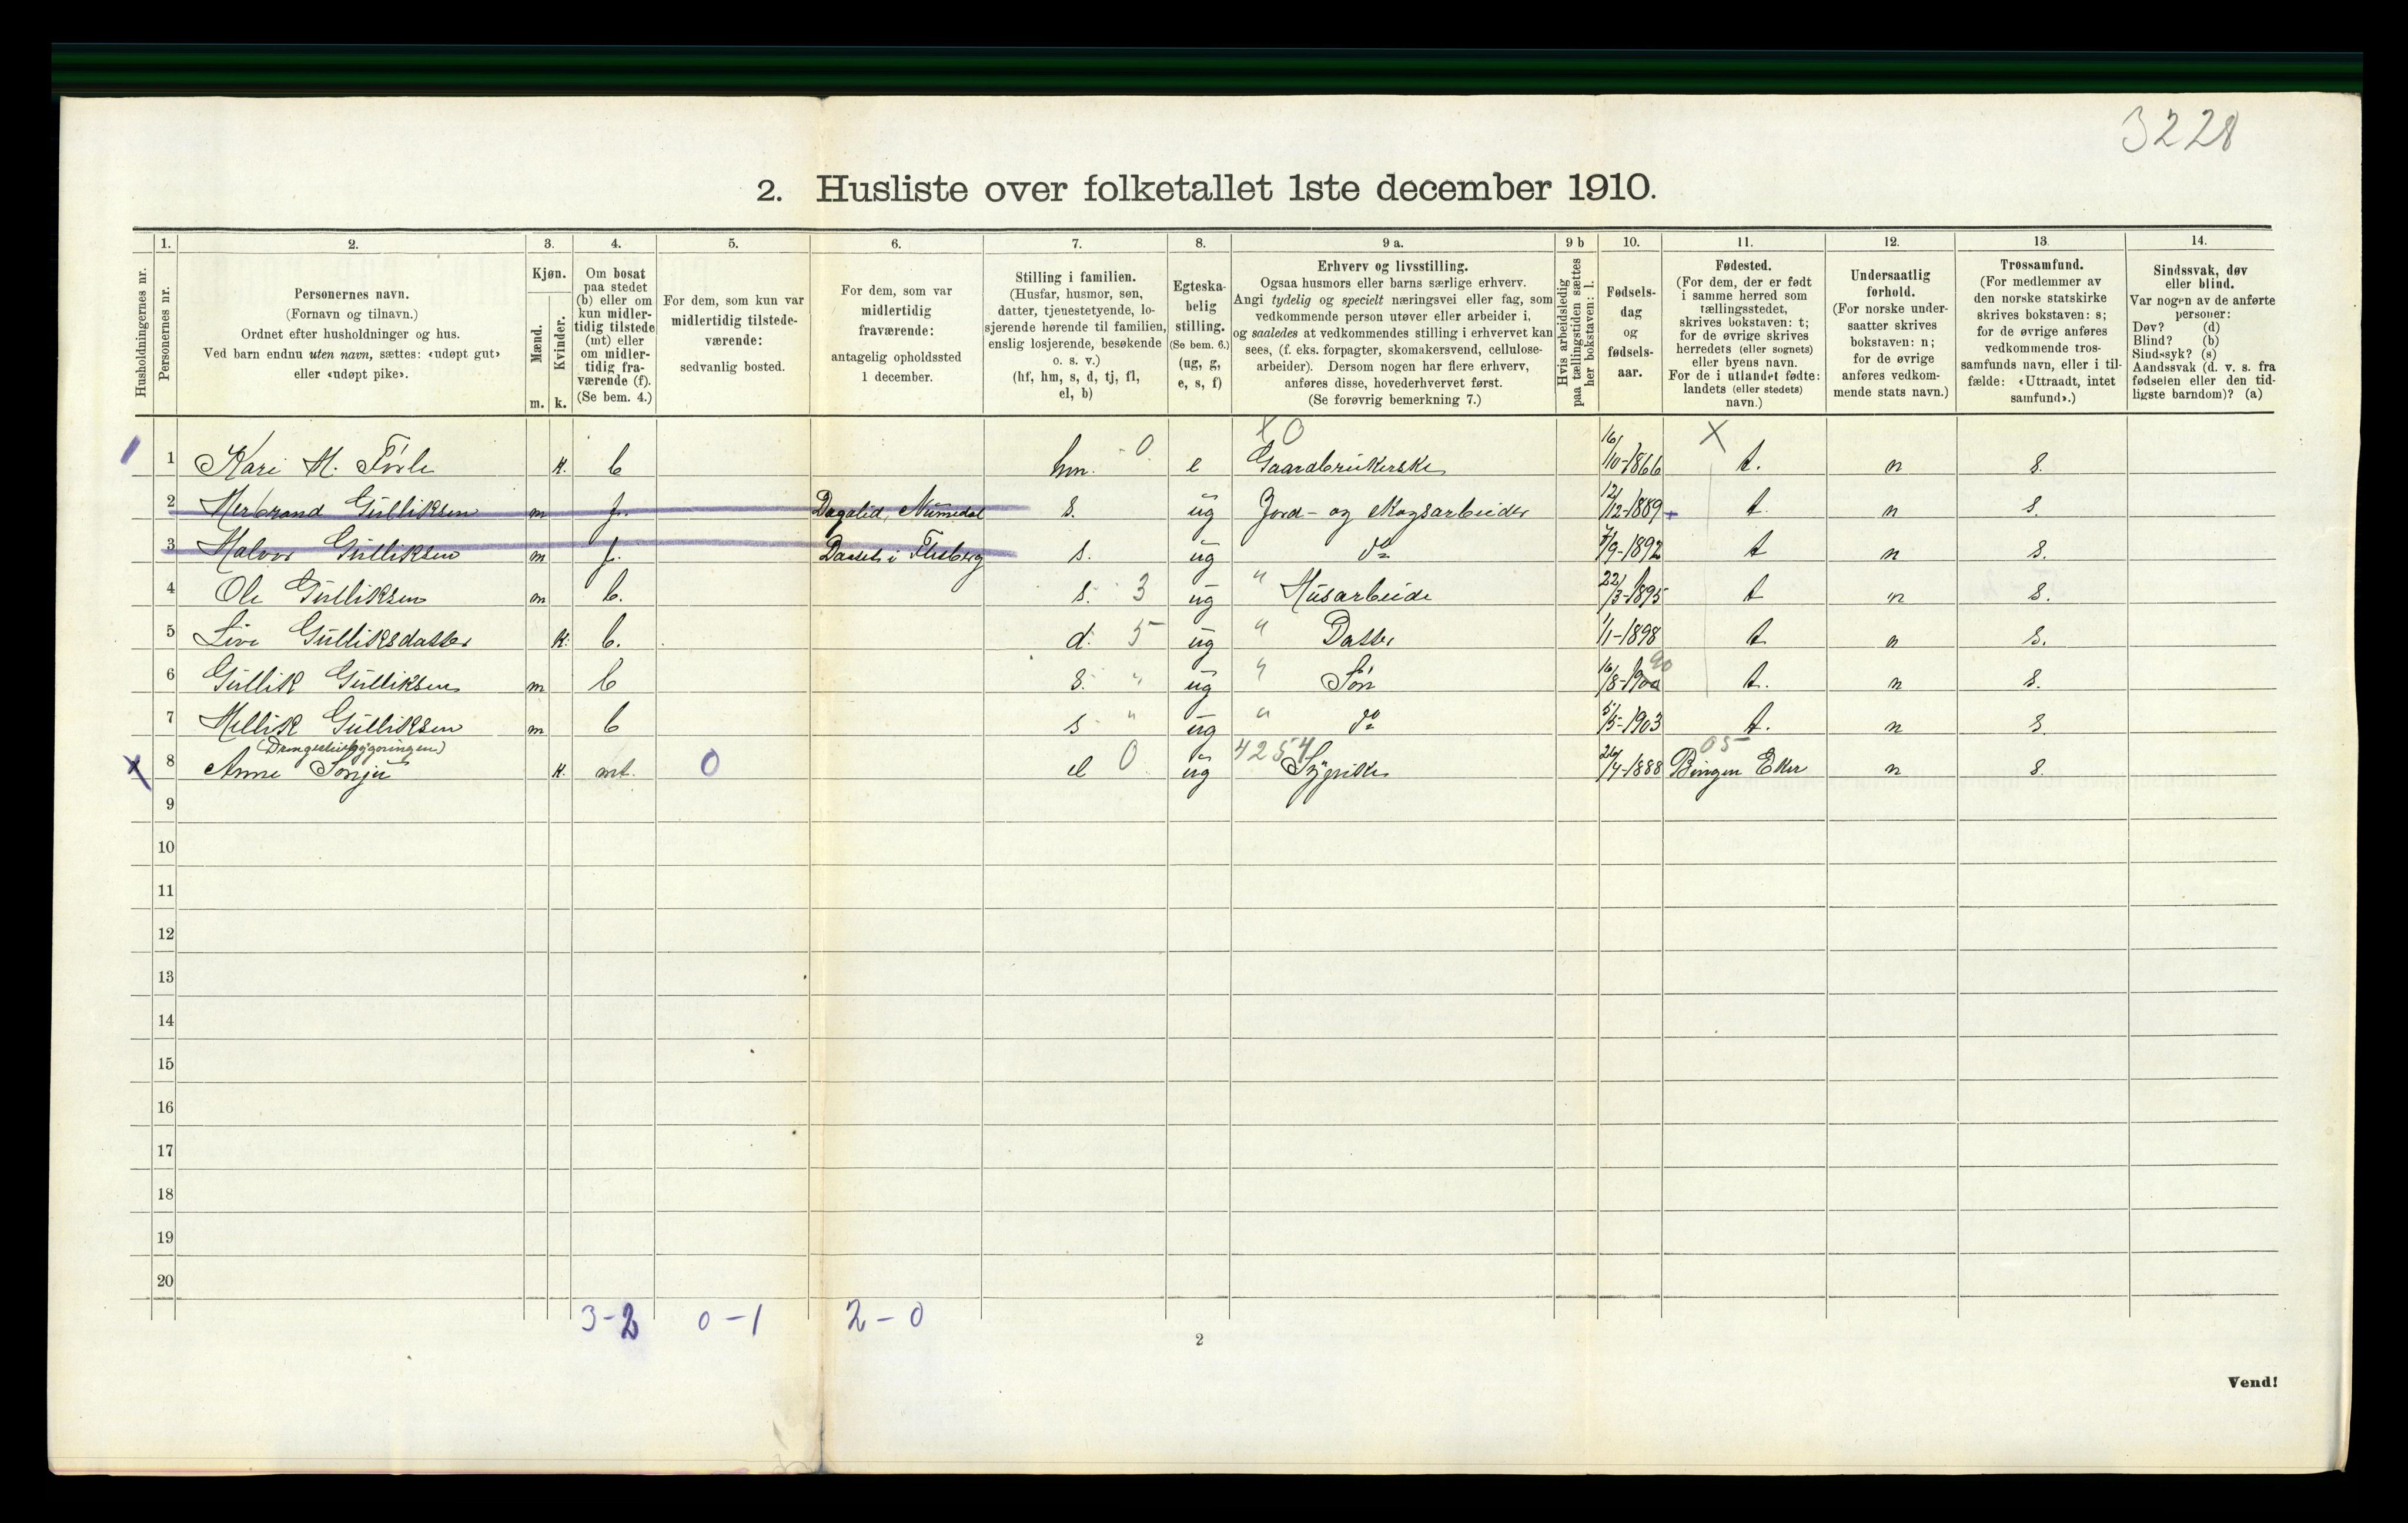 3228
2. Husliste over folketallet 1ste december 1910.
Husholdningernes nr.
1.
Personernes nr.
2.
Personernes navn.
(Fornavn og tilnavn.)
Ordnet efter husholdninger og hus.
Ved barn endnu uten navn, sættes: «udøpt gut»
eller «udøpt pike».
3.
Kjøn.
Mænd.
Kvinder.
m. k.
4.
Om bosat
paa stedet
(b) eller om
kun midler-
tidig tilstede
(mt) eller
om midler-
tidig fra-
værende (f).
(Se bem. 4.)
5.
For dem, som kun var
midlertidig tilstede-
værende:
sedvanlig bosted.
6.
For dem, som var
midlertidig
fraværende:
antagelig opholdssted
1 december.
7.
Stilling i familien.
(Husfar, husmor, søn,
datter, tjenestetyende, lo-
sjerende hørende til familien,
enslig losjerende, besøkende
o. s. v.)
(hf, hm, s, d, tj, fl,
el, b)
8.
Egteska-
belig
stilling.
(Se bem. 6.)
(ug, g,
e, s, f)
9 a.
Erhverv og livsstilling.
Ogsaa husmors eller barns særlige erhverv.
Angi tydelig og specielt næringsvei eller fag, som
vedkommende person utøver eller arbeider i,
og saaledes at vedkommendes stilling i erhvervet kan
sees, (f. eks. forpagter, skomakersvend, cellulose-
arbeider). Dersom nogen har flere erhverv,
anføres disse, hovederhvervet først.
(Se forøvrig bemerkning 7.)
9 b
Hvis arbeidsledig
paa tællingstiden sættes
her bokstaven: l.
10.
Fødsels-
dag
og
fødsels-
aar.
11.
Fødested.
(For dem, der er født
i samme herred som
tællingsstedet,
skrives bokstaven: t;
for de øvrige skrives
herredets (eller sognets)
eller byens navn.
For de i utlandet fødte:
landets (eller stedets)
navn.)
12.
Undersaatlig
forhold.
(For norske under-
saatter skrives
bokstaven: n;
for de øvrige
anføres vedkom-
mende stats navn.)
13.
Trossamfund.
(For medlemmer av
den norske statskirke
skrives bokstaven: s;
for de øvrige anføres
vedkommende tros-
samfunds navn, eller i til-
fælde: «Uttraadt, intet
samfund».)
14.
Sindssvak, døv
eller blind.
Var nogen av de anførte
personer:
Døv? (d)
Blind? (b)
Sindssyk? (s)
Aandssvak (d. v. s. fra
fødselen eller den tid-
ligste barndom)? (a)
X 0 X
1 1 Kari H. k. b hm. 0 e Gaardbrukerske 16/10-1866 t. n s.
2 Herbrand Gulliksen m f. Dagalid, Numedal s. ug Jord- og skogsarbeider 12/12-1889 t. n s.
3 Halvor Gulliksen m f. i Flesberg s. ug do 7/9-1892 t n s.
4 Ole Gulliksen m b. s. 3 ug " Husarbeide 22/3-1895 t n s.
5 Live Gulliksdatter k. b. d. 5 ug " Datter 1/1-1898 t n s.
6 Gullik Gulliksen m b s. " ug " Søn 16/8-1900 90 t. n s.
7 Hellik Gulliksen m b s " ug " do 5/5-1903 t. n s.
(Drengestuebygningen) 4254 05
X 8 Anne Sønju k. mt. 0 el 0 ug Sypike 26/4-1888 Bingen Eker n s.
9
10
11
12
13
14
15
16
17
18
19
20
3-2 0-1 2-0
2
Vend!